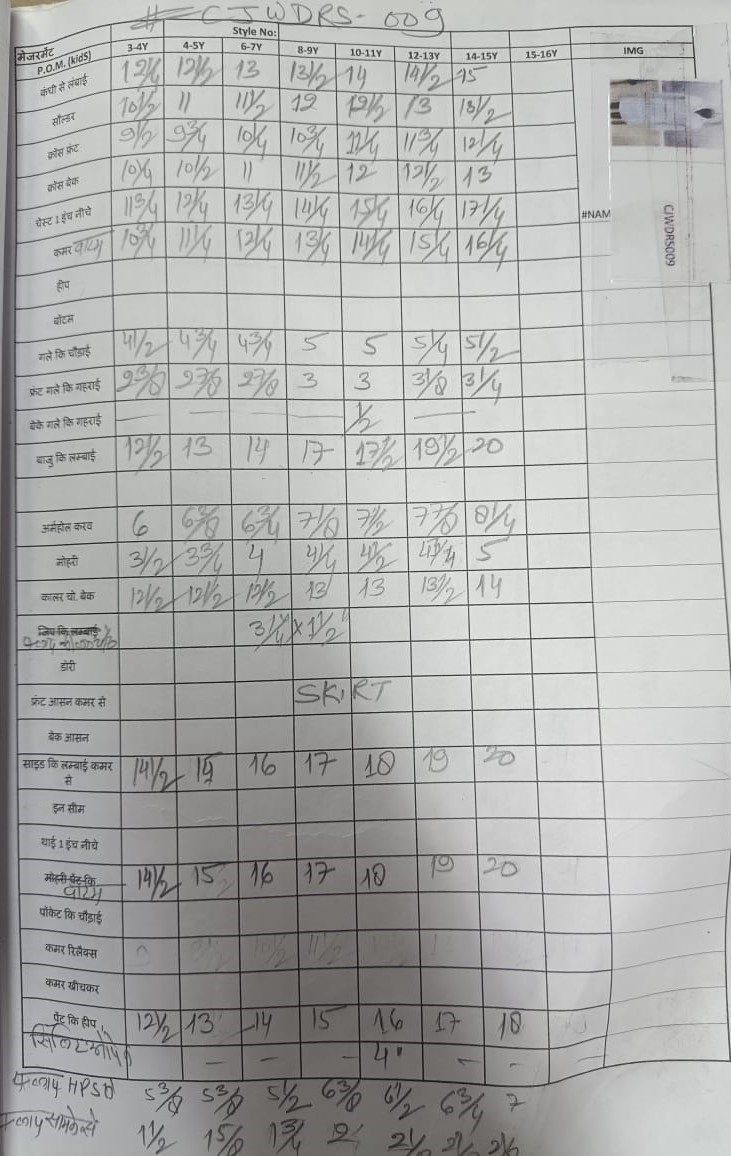 # CJWDRS-009
मेजरमेंट Style No:
P.O.M. (kids) 3-4Y 4-5Y 6-7Y 8-9Y 10-11Y 12-13Y 14-15Y 15-16Y IMG
कंधी से लंबाई 12 1/4 12 1/2 13 13 1/2 14 14 1/2 15
सोल्डर 10 1/2 11 11 1/2 12 12 1/2 13 13 1/2
क्रोस फ्रंट 9 1/2 9 3/4 10 1/4 10 3/4 11 1/4 11 3/4 12 1/4
क्रोस बेक 10 1/4 10 1/2 11 11 1/2 12 12 1/2 13
चेस्ट 1 इंच नीचे 11 3/4 12 1/4 13 1/4 14 1/4 15 1/4 16 1/4 17 1/4 #NAM
कमर 10 3/4 11 1/4 12 1/4 13 1/4 14 1/4 15 1/4 16 1/4
CJWDRS009
हीप
बोटम
गले कि चौड़ाई 4 1/2 4 3/4 4 3/4 5 5 5 1/4 5 1/2
फ्रंट गले कि गहराई 2 3/8 2 7/8 2 7/8 3 3 3 1/8 3 1/4
बेक गले कि गहराई 1/2
बाजु कि लम्बाई 12 1/2 13 14 17 17 1/2 19 1/2 20
अर्महोल करव 6 6 3/8 6 3/4 7 1/8 7 1/2 7 7/8 8 1/4
मोहरी 3 1/2 3 3/4 4 4 1/4 4 1/2 4 3/4 5
कालर चो. बेक 12 1/2 12 1/2 12 1/2 13 13 13 1/2 14
जिप कि लम्बाई 3 1/4 x 1 1/2"
डोरी
फ्रंट आसन कमर से SKIRT
बेक आसन
साइड कि लम्बाई कमर से 14 1/2 15 16 17 18 19 20
इन सीम
थाई 1 इंच नीचे
मोहरी पेंट कि 14 1/2 15 16 17 18 19 20
पॉकेट कि चौड़ाई
कमर रिलैक्स
कमर खीचकर
पेंट कि हीप 12 1/2 13 14 15 16 17 18
— — — 4" — — —
HPS 5 3/8 5 3/8 5 1/2 6 3/8 6 1/2 6 3/4 7
1 1/2 1 5/8 1 3/4 2